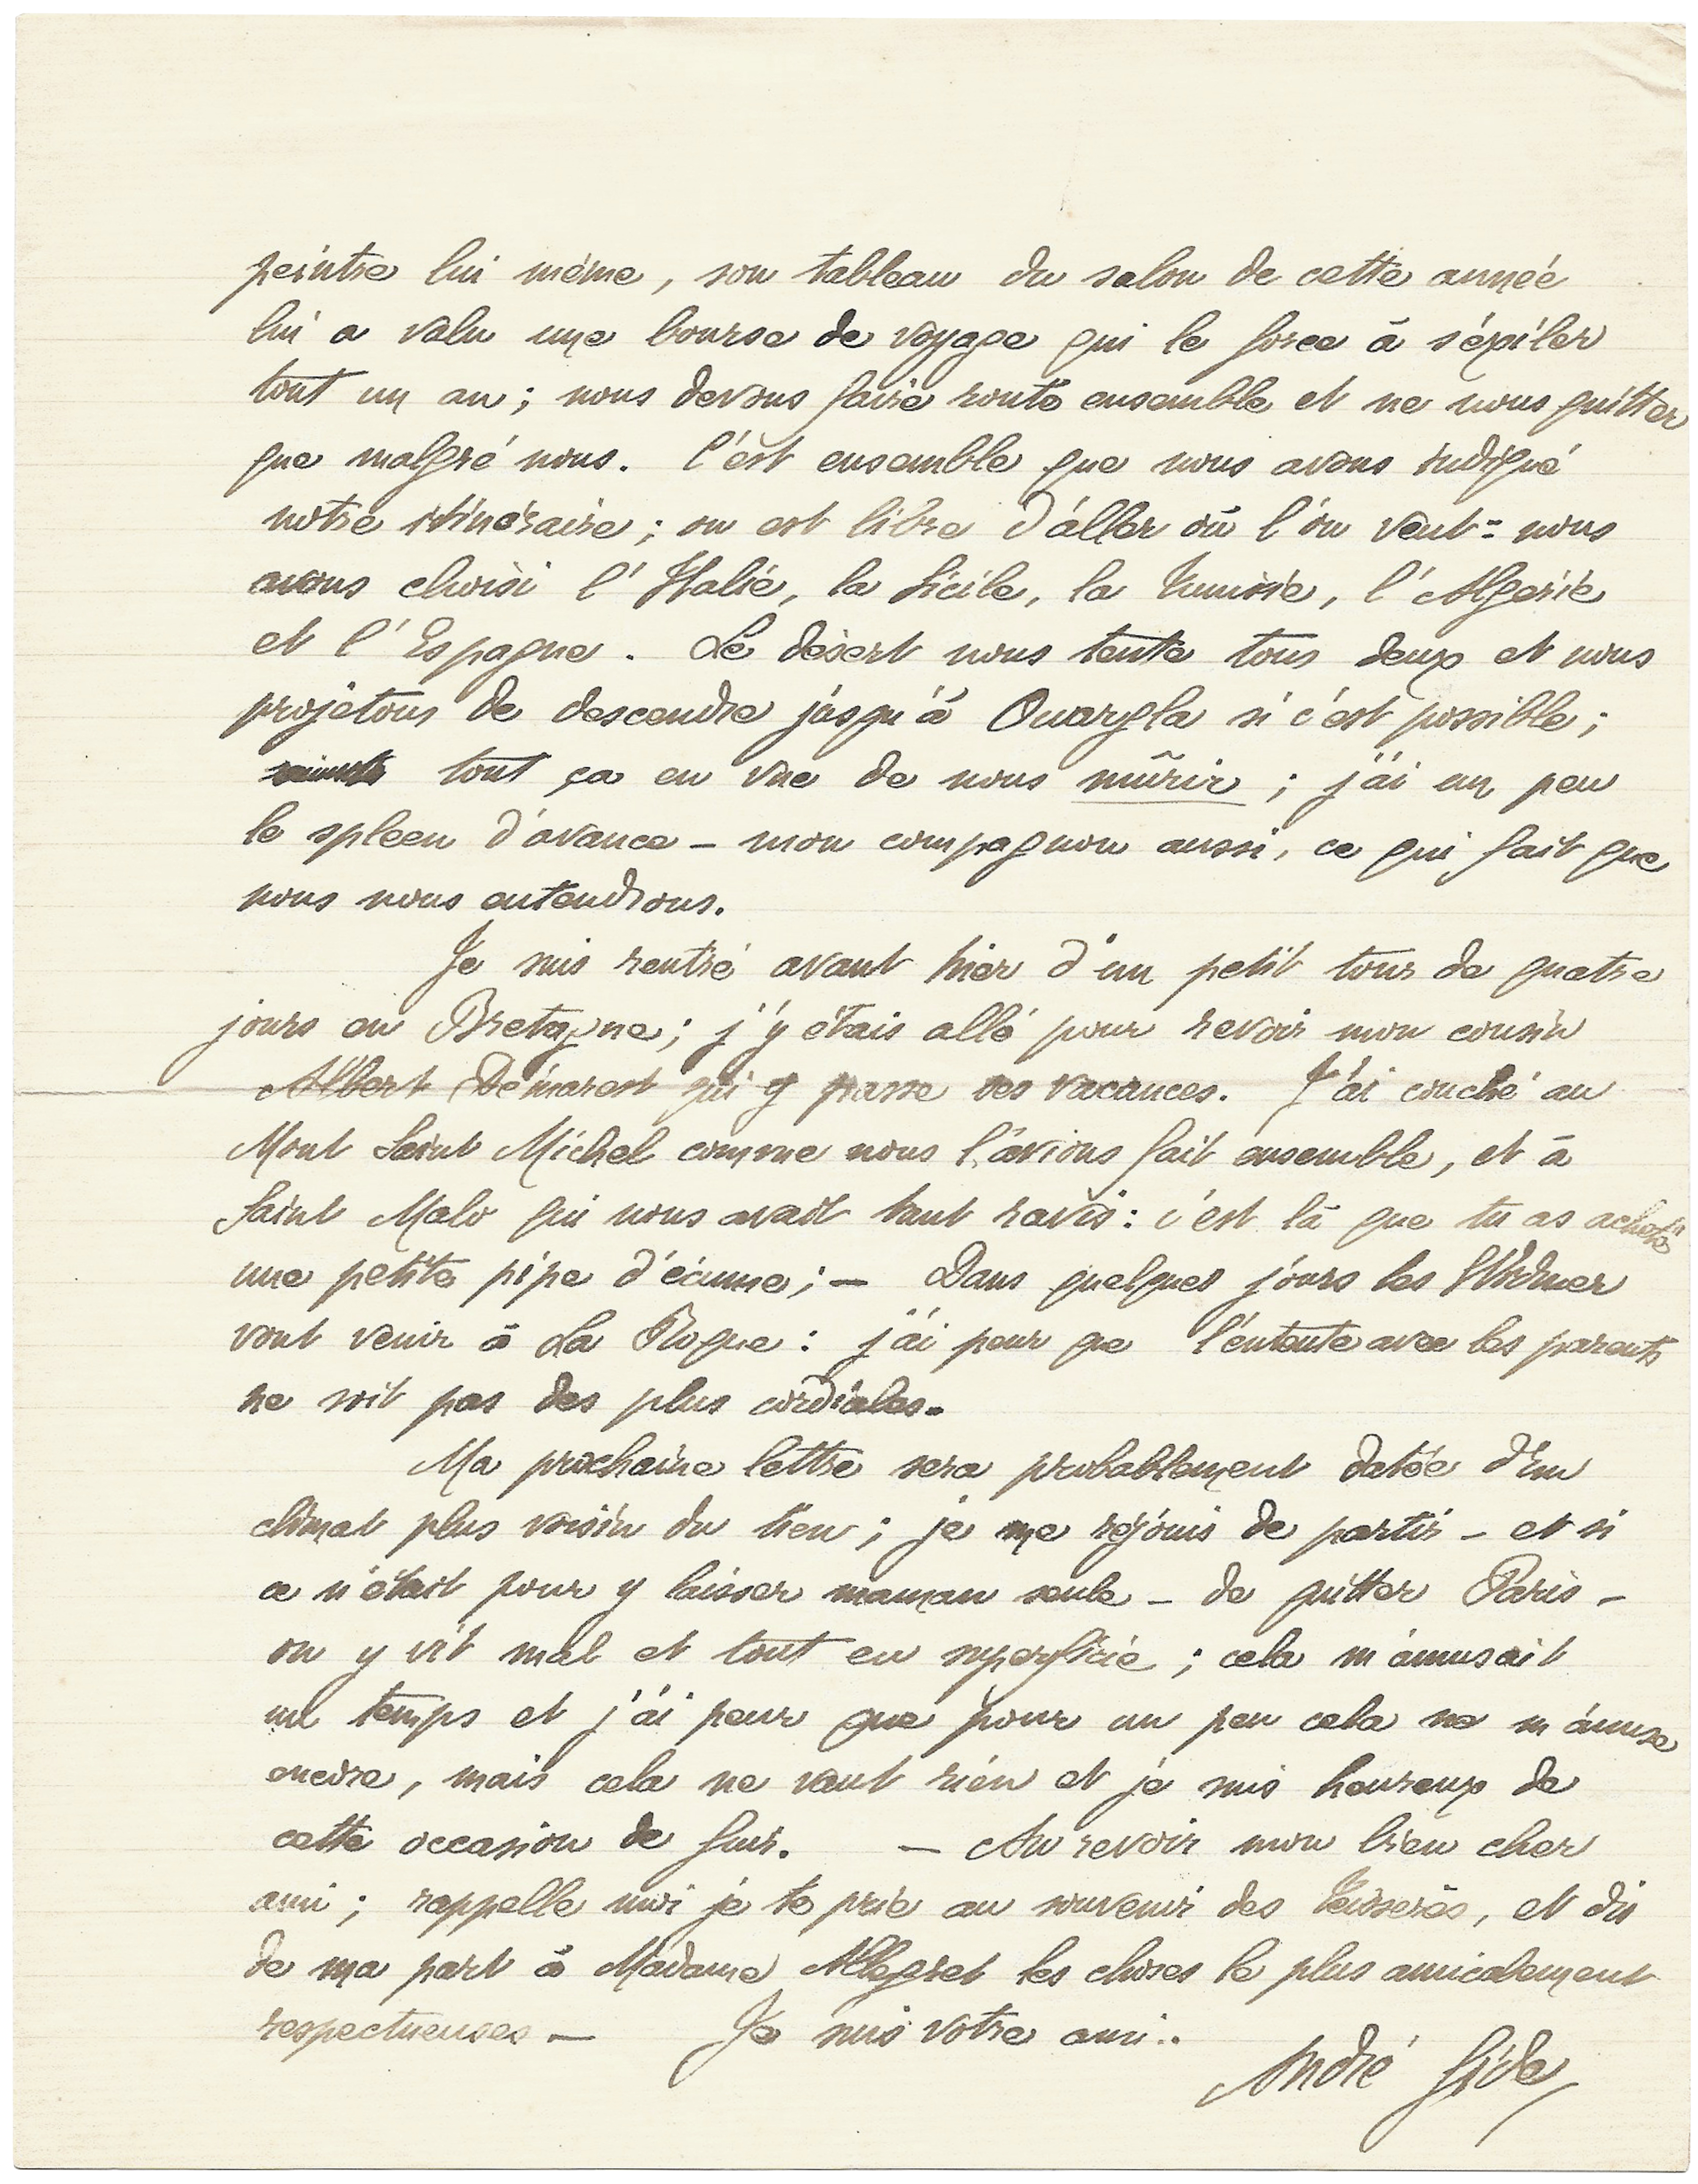 peintre lui même, son tableau du salon de cette année
lui a valu une bourse de voyage qui le force à s'éxiler
tout un an ; nous devons faire route ensemble et ne nous quitter
que malgré nous. C'est ensemble que nous avons indiqué
notre itinéraire ; on est libre d'aller où l'on veut = nous
avons choisi l'Italie, la Sicile, la Tunisie, l'Algérie
et l'Espagne. Le désert nous tente tous deux et nous
projetons de descendre jusqu'à Ouargla si c'est possible ;
tout ça en vue de nous mûrir ; j'ai un peu
le spleen d'avance – mon compagnon aussi, ce qui fait que
nous nous entendrons.
Je suis rentré avant hier d'un petit tour de quatre
jours en Bretagne ; j'y étais allé pour revoir mon cousin
Albert Démarest qui y passe ses vacances. J'ai couché au
Mont Saint Michel comme nous l'avions fait ensemble, et à
Saint Malo qui nous avait tant ravis : c'est là que tu as acheté
une petite pipe d'écume ; – Dans quelques jours les Widmer
vont venir à La Roque : j'ai peur que l'entente avec les parents
ne soit pas des plus cordiales.
Ma prochaine lettre sera probablement datée d'un
climat plus voisin du tien ; je me réjouis de partir – et si
ce n'était pour y laisser maman seule – de quitter Paris –
on y vit mal et tout en superficie ; cela m'amusait
un temps et j'ai peur que pour un peu cela ne m'amuse
encore, mais cela ne vaut rien et je suis heureux de
cette occasion de fuir. – Au revoir mon bien cher
ami ; rappelle moi je te prie au souvenir des Teisserès, et dis
de ma part à Madame Allégret les choses le plus amicalement
respectueuses – Je suis votre ami..
André Gide